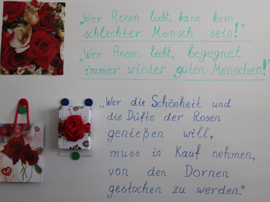 „Wer Rosen liebt, kann kein
schlechter Mensch sein!"
„Wer Rosen liebt, begegnet
immer wieder guten Menschen!"
„Wer die Schönheit und
die Düfte der Rosen
genießen will,
muss in Kauf nehmen,
von den Dornen
gestochen zu werden."